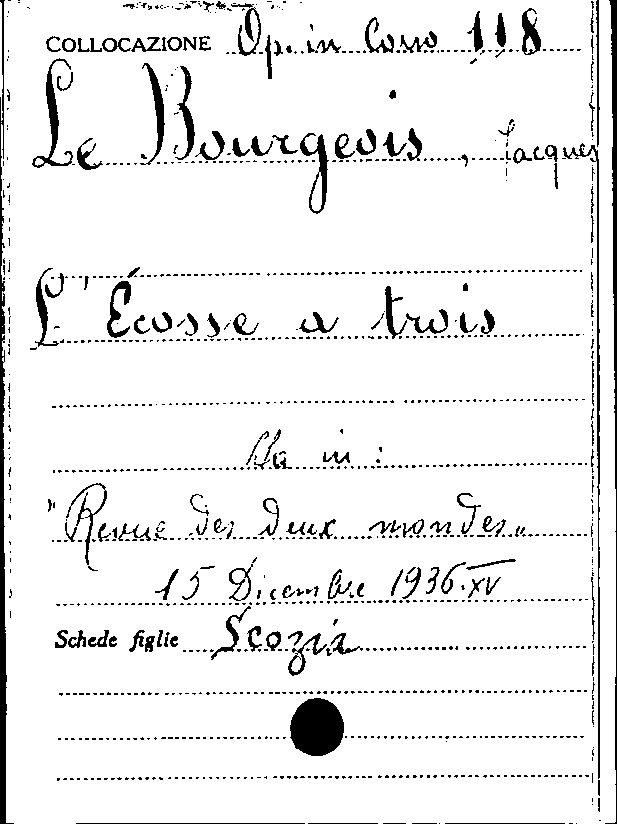 COLLOCAZIONE Op. in Corso 118
Le Bourgeois, Jacques
L'Écosse a trois
Sta in:
"Revue des deux mondes„
15 Dicembre 1936.XV
Schede figlie Scozia